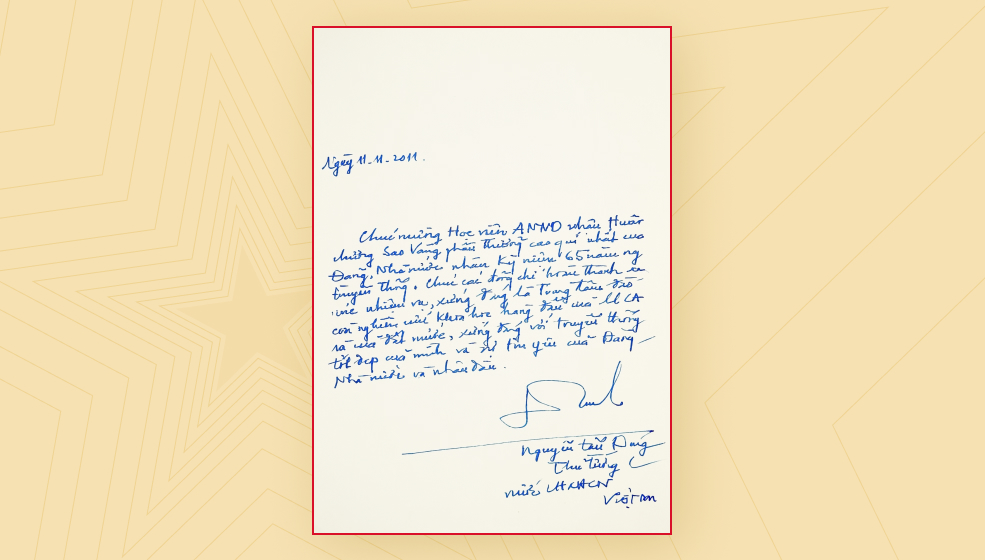 Ngày 11-11-2011.
Chúc mừng Học viện ANND nhận Huân
chương Sao Vàng phần thưởng cao quí nhất của
Đảng, Nhà nước nhân Kỷ niệm 65 năm ng
truyền thống. Chúc các đồng chí hoàn thành xu
nhiệm vụ, xứng đáng là Trung tâm đào
nghiên cứu khoa học hàng đầu của LLCA
của đất nước, xứng đáng với truyền thống
tốt đẹp của mình và sự tin yêu của Đảng
Nhà nước và nhân dân.
Nguyễn Tấn Dũng
Thủ tướng
nước CHXHCN
Việt Nam